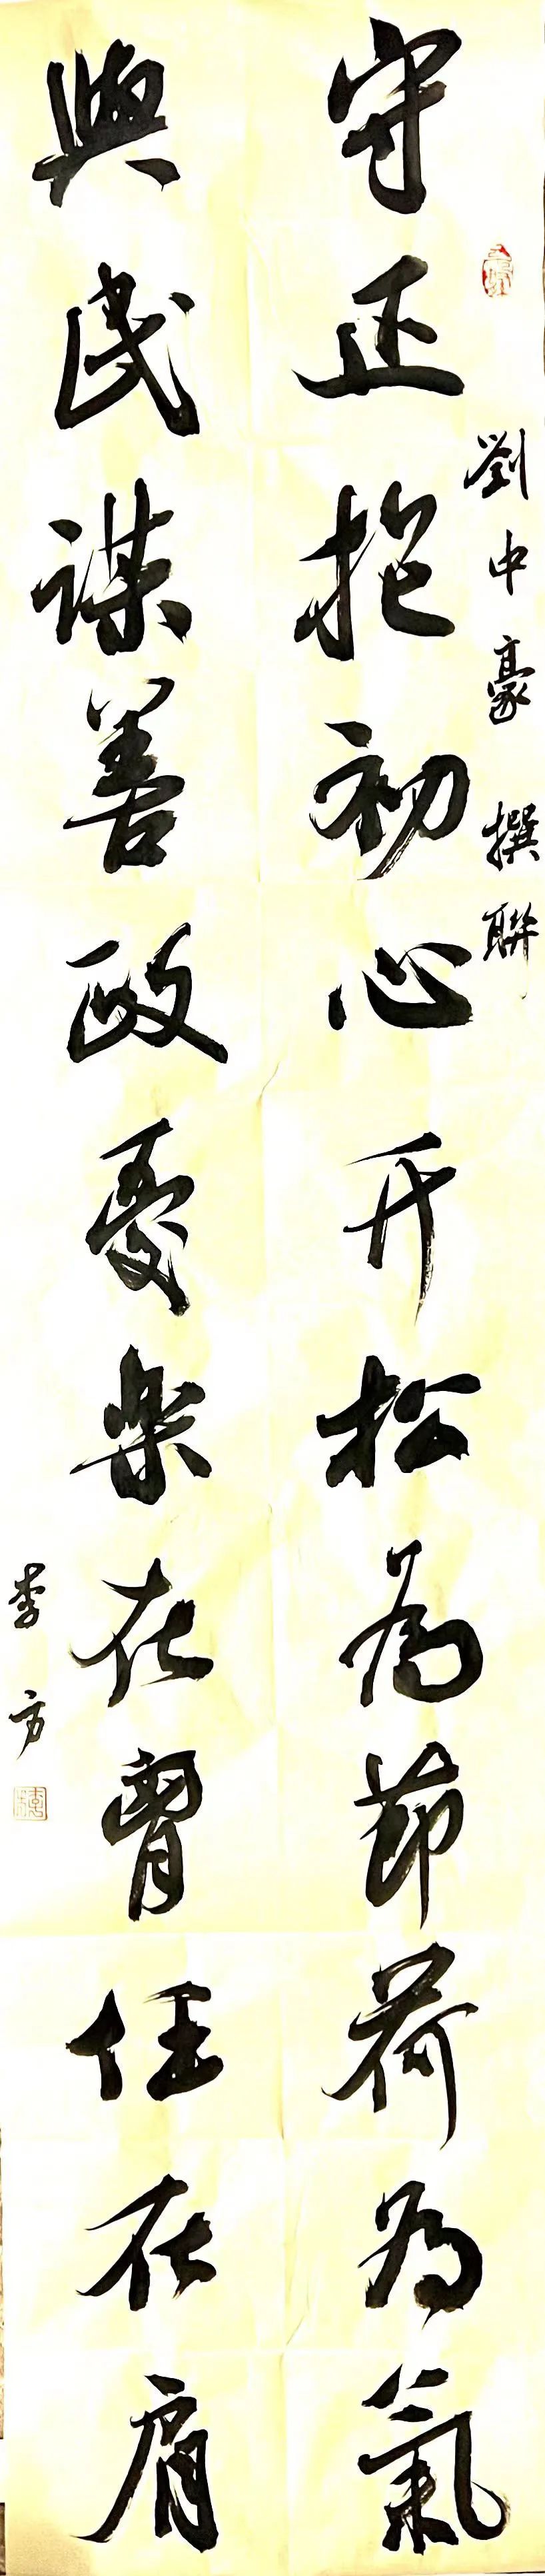 劉中豪 撰聯
守正抱初心开松為節荷為氣
與民謀善政憂樂在胷任在肩
李方